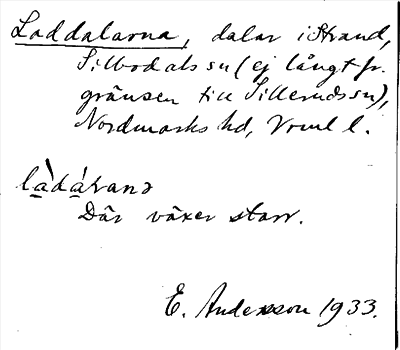 Laddalarna, dalar i Strand,
Silbodals sn (ej långt fr.
gränsen till Sillerudssn),
Nordmarks hd, Vrml l.
làdáɽana
Där växer starr.
E. Andersson 1933.